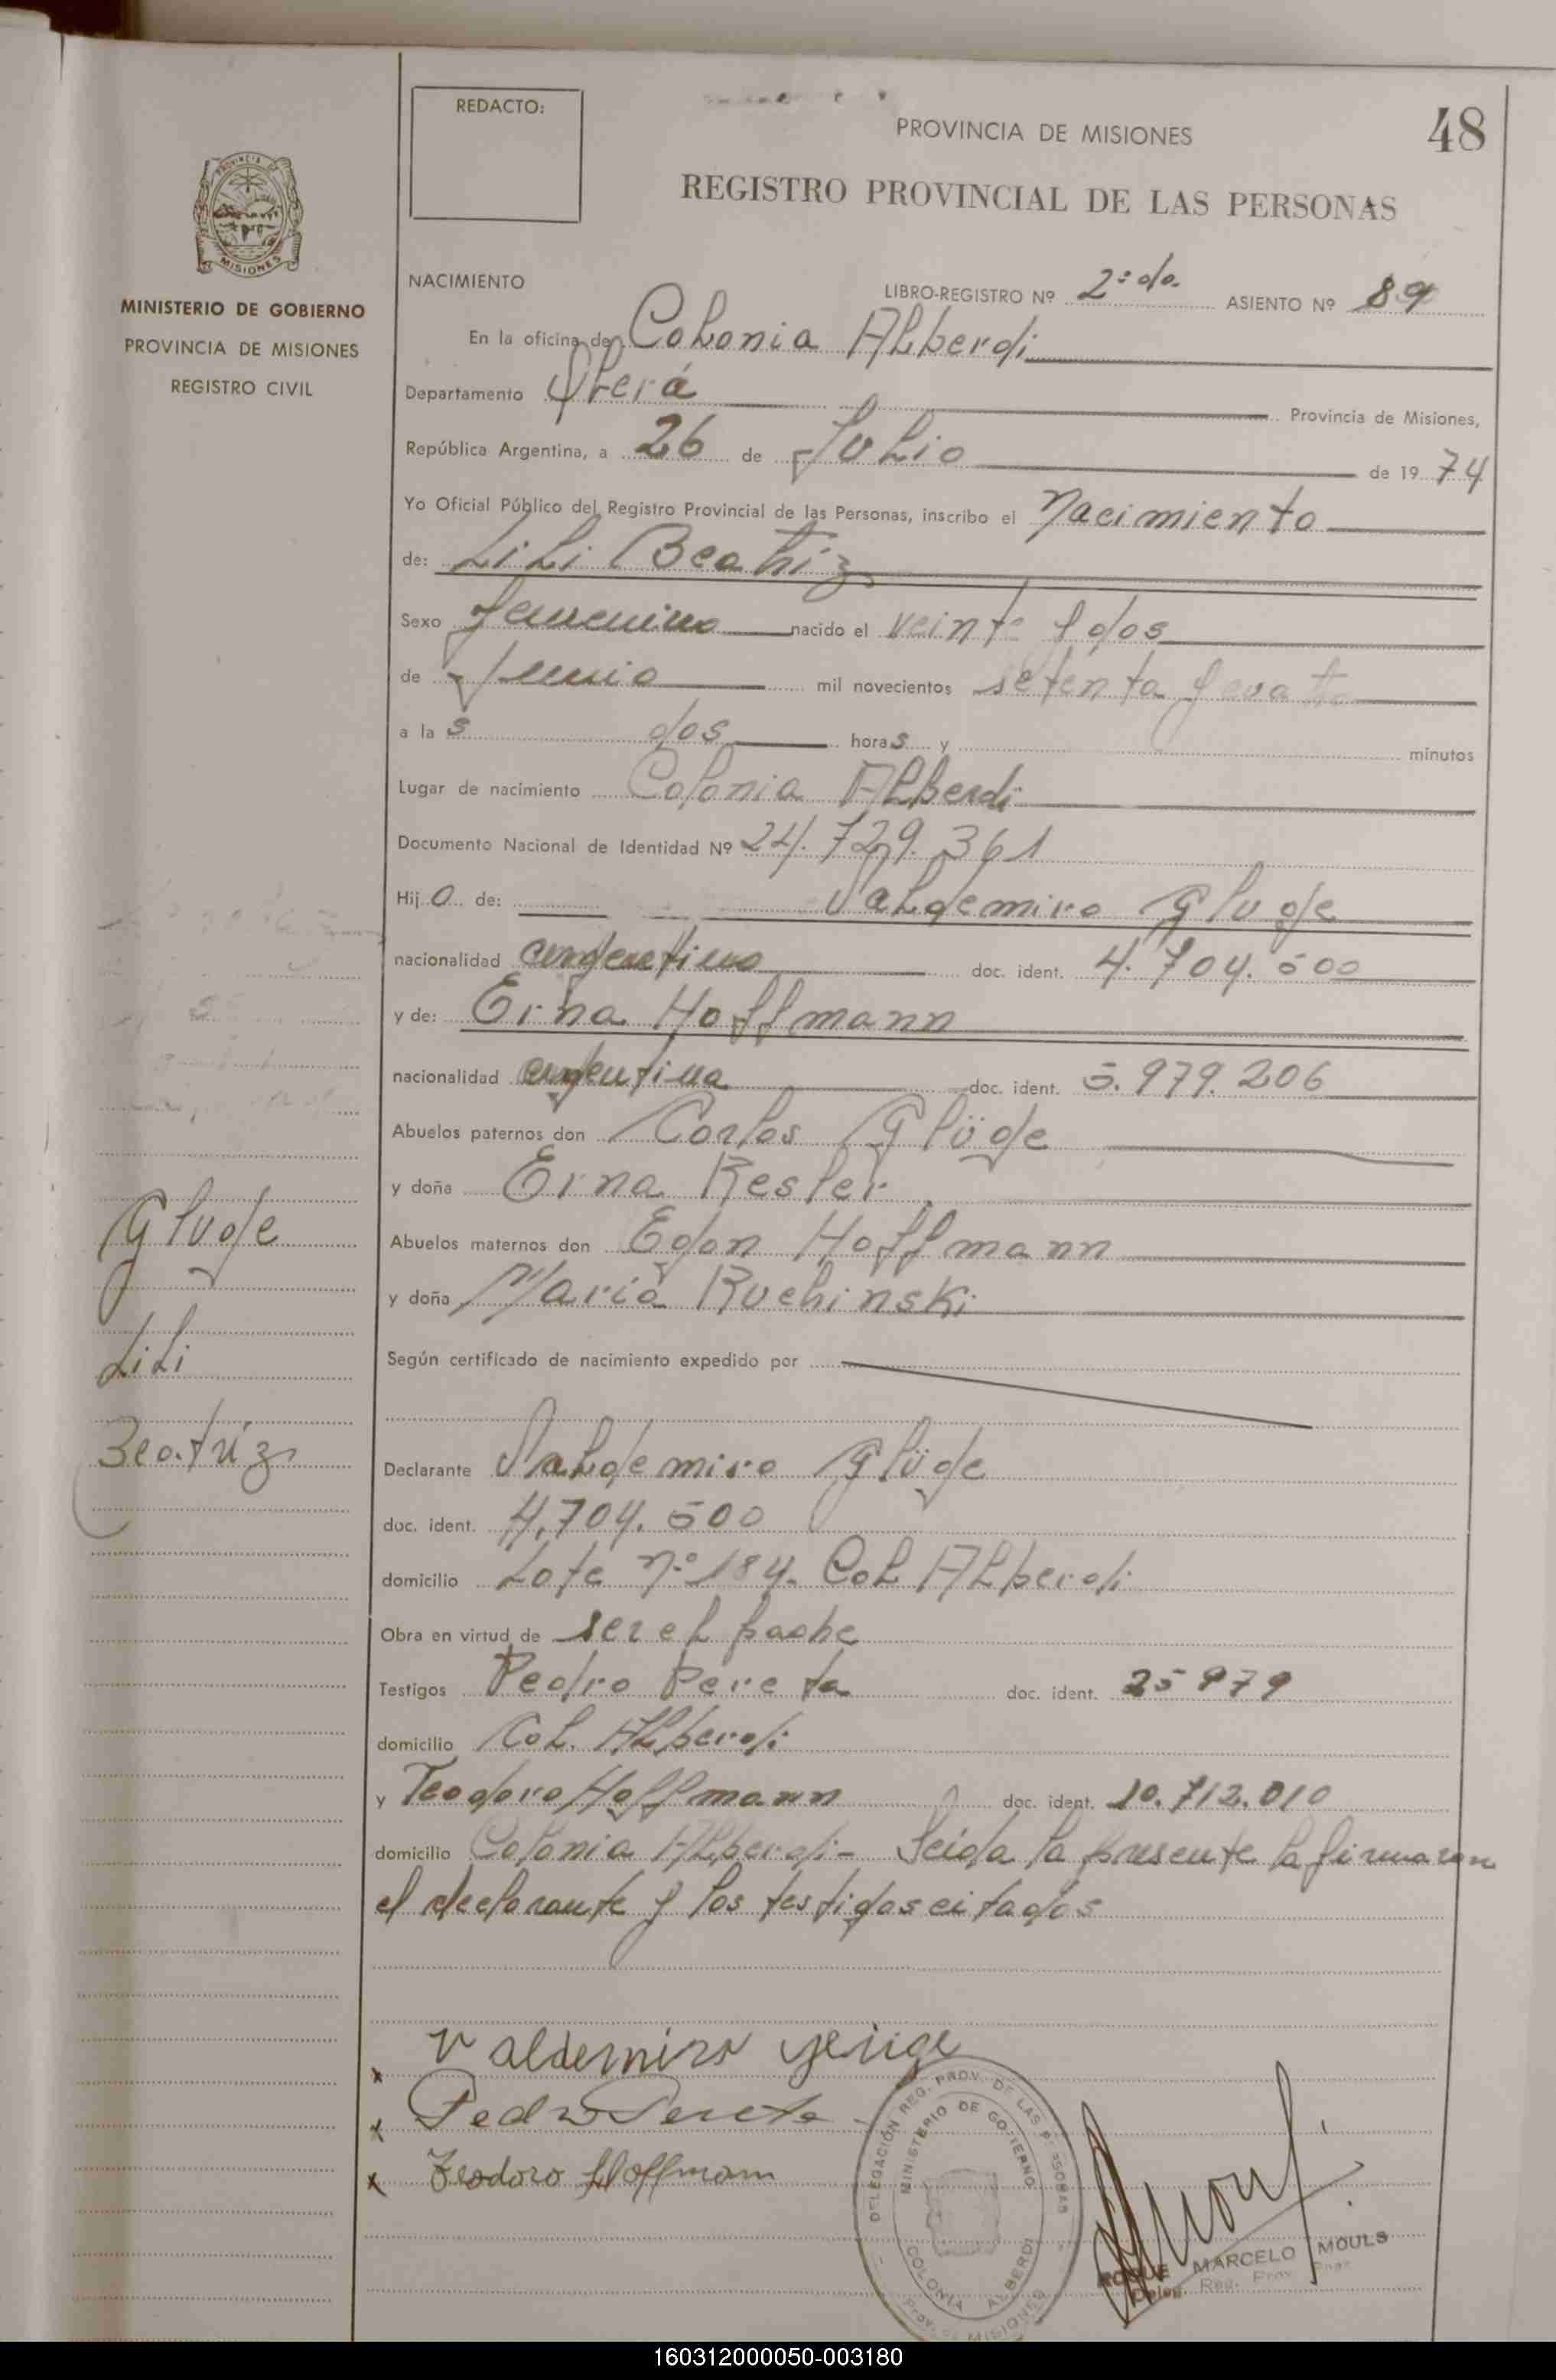 REDACTO:
PROVINCIA DE MISIONES
48
REGISTRO PROVINCIAL DE LAS PERSONAS
PROVINCIA DE
MISIONES
MINISTERIO DE GOBIERNO
PROVINCIA DE MISIONES
REGISTRO CIVIL
NACIMIENTO
LIBRO-REGISTRO Nº 2:do. ASIENTO Nº 89
En la oficina de Colonia Alberdi
Departamento Oberá Provincia de Misiones,
República Argentina, a 26 de Julio de 1974
Yo Oficial Público del Registro Provincial de las Personas, inscribo el Nacimiento
de: Lili Beatriz
Sexo femenino nacido el veinte y dos
de Junio mil novecientos setenta y cuatro
a las dos horas y minutos
Lugar de nacimiento Colonia Alberdi
Documento Nacional de Identidad Nº 24.729.361
Hija de: Valdemiro Gluge
nacionalidad argentino doc. ident. 4.704.500
y de: Erna Hoffmann
nacionalidad argentina doc. ident. 5.979.206
Abuelos paternos don Carlos Glüge
y doña Erna Resler
Abuelos maternos don Egon Hoffmann
y doña Maria Ruchinski
Gluge
Lili
Beatriz
Según certificado de nacimiento expedido por
Declarante Valdemiro Glüge
doc. ident. 4.704.500
domicilio Lote nº 184. Col Alberdi
Obra en virtud de ser el padre
Testigos Pedro Pereta doc. ident. 25979
domicilio Col. Alberdi
y Teodoro Hoffmann doc. ident. 10.712.010
domicilio Colonia Alberdi - Leida la presente la firmaron
el declarante y los testigos citados
x Valdemiro
x Pedro Pereta
x Teodoro Hoffmann
DELEGACIÓN REG. PROV. DE LAS PERSONAS
MINISTERIO DE GOBIERNO
COLONIA ALBERDI
Prov. de MISIONES
ROQUE MARCELO MOULS
Deleg. Reg. Prov. Pnas
160312000050-003180